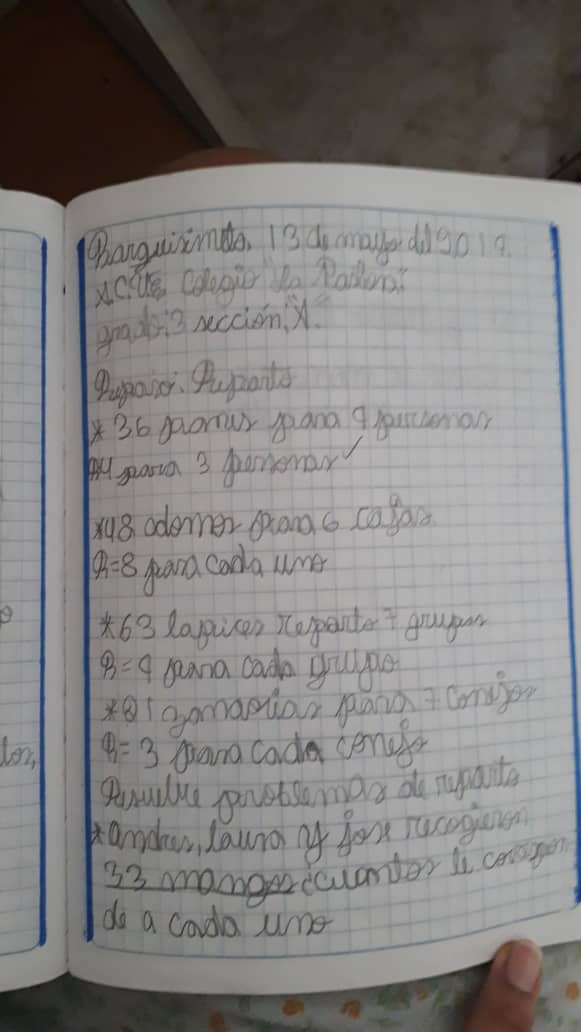 Barquisimeto, 13 de mayo del 2019.
Colegio "La Pastora"
grado: 3 sección: "A"
Repaso. Reparto
* 36 para 9 personas
4 para 3 personas ✓
*48 adornos para 6 cajas
R=8 para cada uno
*63 lapices reparto 7 grupos
R=9 para cada grupo
*21 zanaorias para 7 conejos
R=3 para cada conejo
Resuelve problemas de reparto
*andres, laura y jose recogieron
33 mangos ¿cuantos le
de a cada uno
los,